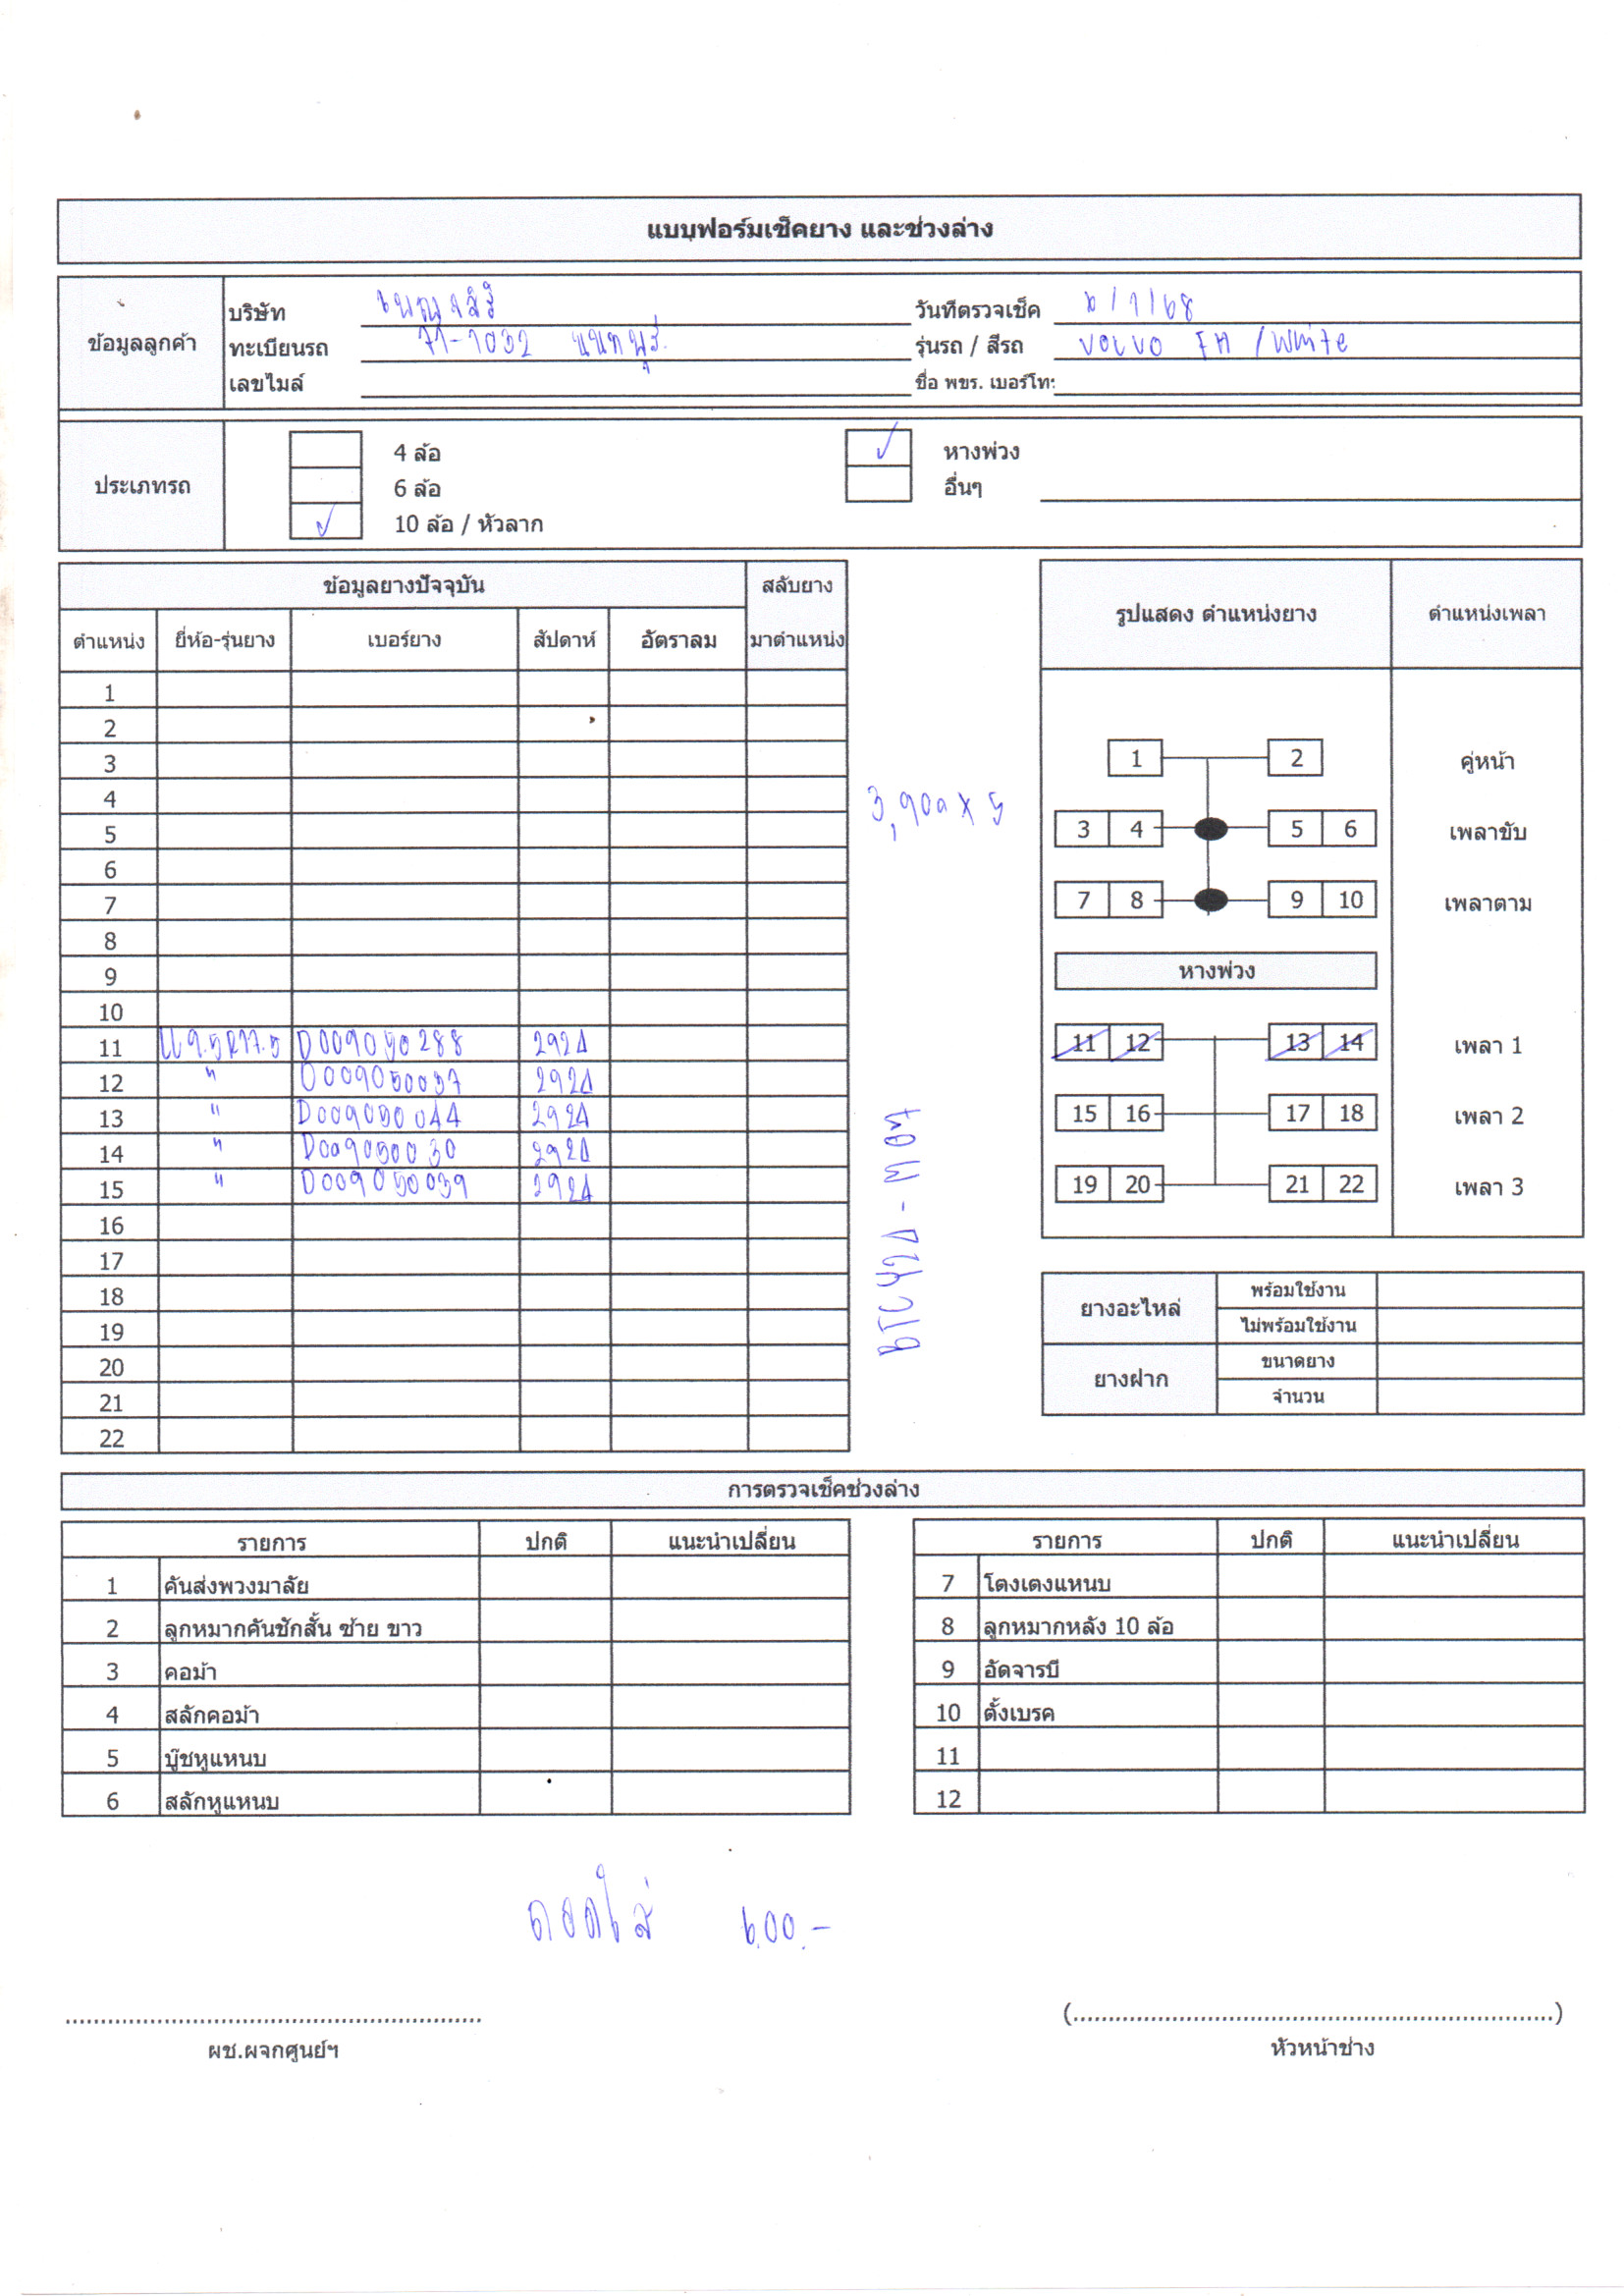 แบบฟอร์มเช็คยาง และช่วงล่าง
ข้อมูลลูกค้า
บริษัท เพญจสิริ วันที่ตรวจเช็ค 6/1/68
ทะเบียนรถ 71-1032 นนทบุรี รุ่นรถ / สีรถ VOLVO FM / White
เลขไมล์ ชื่อ พขร. เบอร์โทร
ประเภทรถ
4 ล้อ ✓ หางพ่วง
6 ล้อ อื่นๆ
✓ 10 ล้อ / หัวลาก
ข้อมูลยางปัจจุบัน สลับยาง
ตำแหน่ง ยี่ห้อ-รุ่นยาง เบอร์ยาง สัปดาห์ อัตราลม มาตำแหน่ง
1
2
3
4
5
6
7
8
9
10
11 9.5R17.5 D009050288 2924
12 " D009050037 2924
13 " D009050044 2924
14 " D009050030 2924
15 " D009050039 2924
16
17
18
19
20
21
22
3,900 x 5
รูปแสดง ตำแหน่งยาง ตำแหน่งเพลา
1 2 คู่หน้า
3 4 5 6 เพลาขับ
7 8 9 10 เพลาตาม
หางพ่วง
11 12 13 14 เพลา 1
15 16 17 18 เพลา 2
19 20 21 22 เพลา 3
ยางอะไหล่ พร้อมใช้งาน
ไม่พร้อมใช้งาน
ยางฝาก ขนาดยาง
จำนวน
การตรวจเช็คช่วงล่าง
รายการ ปกติ แนะนำเปลี่ยน
1 คันส่งพวงมาลัย
2 ลูกหมากคันชักสั้น ซ้าย ขาว
3 คอม้า
4 สลักคอม้า
5 บู๊ชหูแหนบ
6 สลักหูแหนบ
รายการ ปกติ แนะนำเปลี่ยน
7 โตงเตงแหนบ
8 ลูกหมากหลัง 10 ล้อ
9 อัดจารบี
10 ตั้งเบรค
11
12
ถอดใส่ 600.-
ผช.ผจกศูนย์ฯ
(..............................)
หัวหน้าช่าง